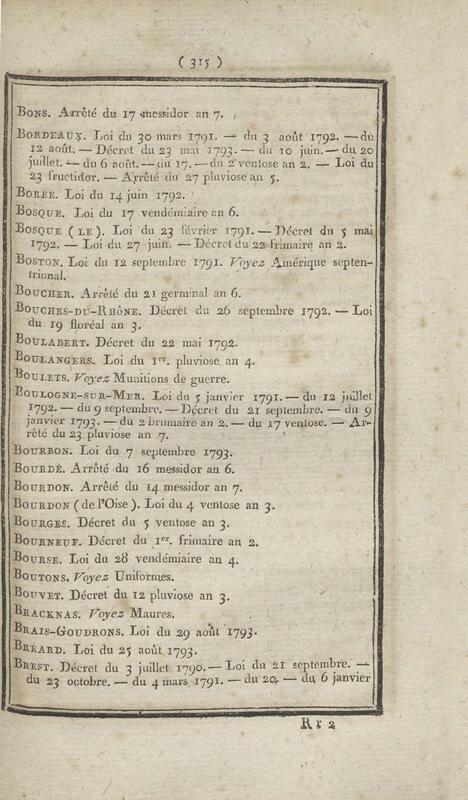 ( 315 )
BONS. Arrêté du 17 messidor an 7.
BORDEAUX. Loi du 30 mars 1791. — du 3 août 1792. — du
12 août. — Décret du 23 mai 1793. — du 10 juin. — du 20
juillet. — du 6 août. — du 17. — du 2 ventose an 2. — Loi du
23 fructidor. — Arrêté du 27 pluviose an 5.
BORÉE. Loi du 14 juin 1792.
BOSQUE. Loi du 17 vendémiaire an 6.
BOSQUE ( LE ). Loi du 23 février 1791. — Décret du 5 mai
1792. — Loi du 27 juin. — Décret du 22 frimaire an 2.
BOSTON. Loi du 12 septembre 1791. Voyez Amérique septen-
trional.
BOUCHER. Arrêté du 21 germinal an 6.
BOUCHES-DU-RHÔNE. Décret du 26 septembre 1792. — Loi
du 19 floréal an 3.
BOULABERT. Décret du 22 mai 1792.
BOULANGERS. Loi du 1er. pluviose an 4.
BOULETS. Voyez Munitions de guerre.
BOULOGNE-SUR-MER. Loi du 5 janvier 1791. — du 12 juillet
1792. — du 9 septembre. — Décret du 21 septembre. — du 9
janvier 1793. — du 2 brumaire an 2. — du 17 ventose. — Ar-
rêté du 23 pluviose an 7.
BOURBON. Loi du 7 septembre 1793.
BOURDÉ. Arrêté du 16 messidor an 6.
BOURDON. Arrêté du 14 messidor an 7.
BOURDON ( de l'Oise ). Loi du 4 ventose an 3.
BOURGES. Décret du 5 ventose an 3.
BOURNEUF. Décret du 1er. frimaire an 2.
BOURSE. Loi du 28 vendémiaire an 4.
BOUTONS. Voyez Uniformes.
BOUVET. Décret du 12 pluviose an 3.
BRACKNAS. Voyez Maures.
BRAIS-GOUDRONS. Loi du 29 août 1793.
BRÉARD. Loi du 25 août 1793.
BREST. Décret du 3 juillet 1790. — Loi du 21 septembre. —
du 23 octobre. — du 4 mars 1791. — du 20. — du 6 janvier
R r 2